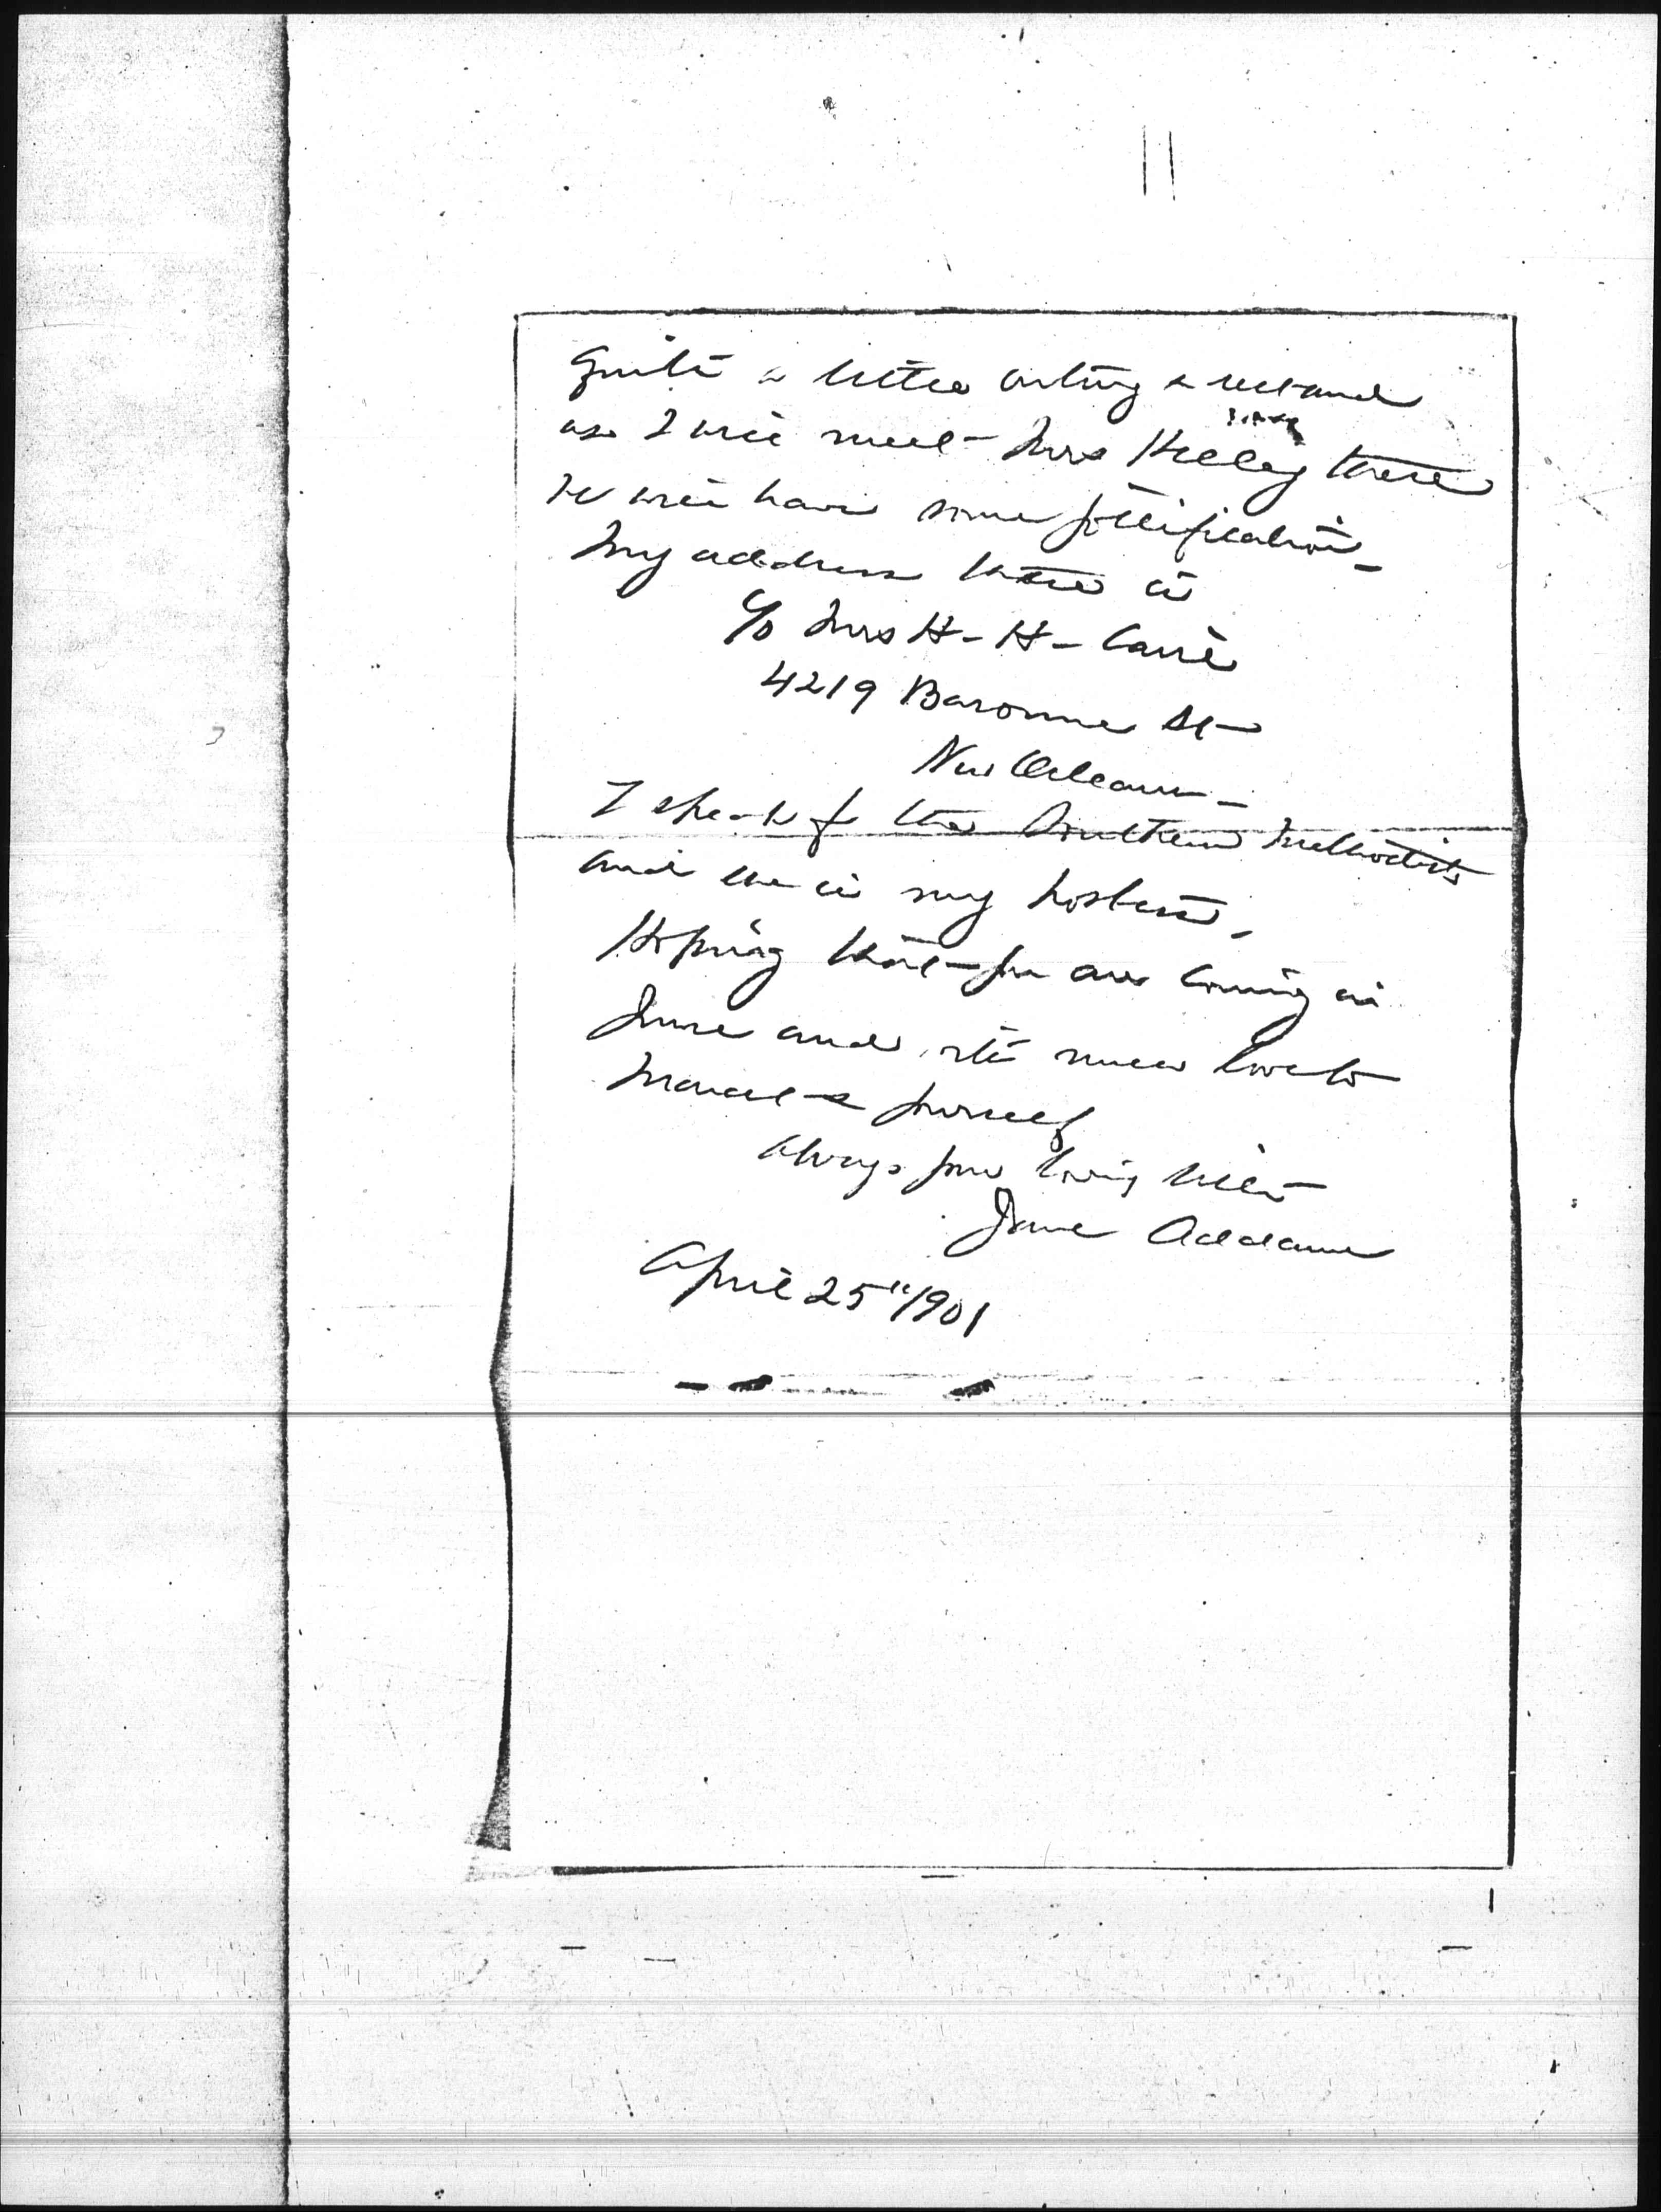 quite a little outing & rest and
as I will meet Mrs Kelley there
we will have some jollification _
My address there is
c/o Mrs H - H - Carré
4219 Baronne St
New Orleans _
I speak for the Southern Methodists
and she is my hostess _
Hoping that you are coming in
June and with much love to
Marcet & yourself
Always your loving sister
Jane Addams
April 25" 1901